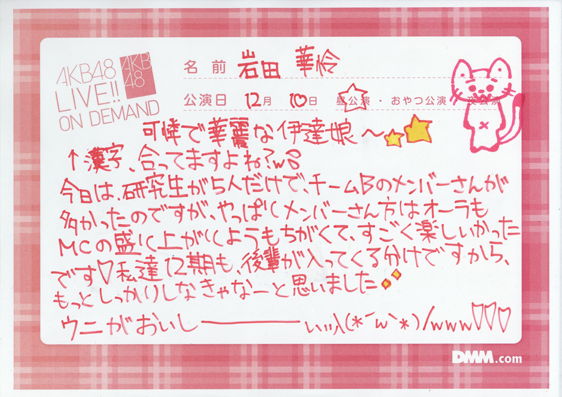 AKB48
LIVE!!
ON DEMAND
AKB
48
名前 岩田 華怜
公演日 12月 10日 昼公演・おやつ公演・夜公演
可憐で華麗な伊達娘〜
↑漢字、合ってますよね?w
今日は、研究生が5人だけで、チームBのメンバーさんが
多かったのですが、やっぱりメンバーさん方はオーラも
MCの盛り上がりようもちがくて、すごく楽しいかった
です♡私達12期も、後輩が入ってくる分けですから、
もっとしっかりしなきゃなーと思いました
ウニがおいし――――いッッ\(*´ω`*)/www♡♡♡
DMM.com